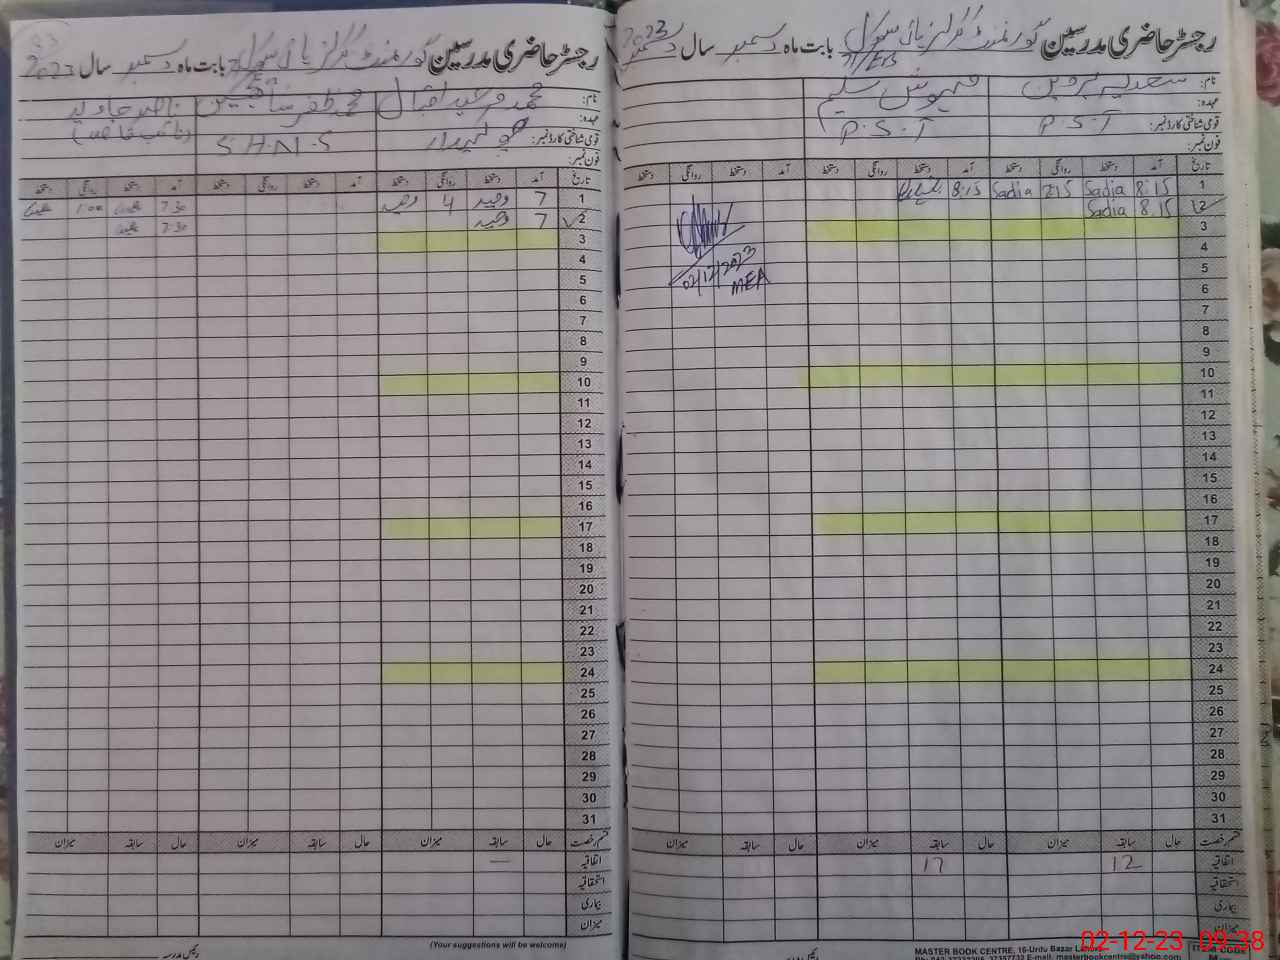 رجسٹر حاضری مدرسین گورنمنٹ گرلز ہائی سکول 71/EB بابت ماہ دسمبر سال 2023
نام: سعدیہ پروین مہوش سلیم
عہدہ:
قومی شناختی کارڈ نمبر: P.S.T P.S.T
فون نمبر:
تاریخ آمد دستخط روانگی دستخط آمد دستخط روانگی دستخط آمد دستخط روانگی دستخط
1 8:15 Sadia 2:15 Sadia 8:15
2 8.15 Sadia
3
4
02/12/2023
5
MEA
6
7
8
9
10
11
12
13
14
15
16
17
18
19
20
21
22
23
24
25
26
27
28
29
30
31
قسم رخصت حال سابقہ میزان حال سابقہ میزان حال سابقہ میزان
اتفاقیہ 12 17
استحقاقیہ
بیماری
میزان
MASTER BOOK CENTRE, 16-Urdu Bazar Lahore
E-mail. masterbookcentre@yahoo.com
ITEM CODE
رجسٹر حاضری مدرسین گورنمنٹ گرلز ہائی سکول بابت ماہ دسمبر سال 2023
نام: محمد وحید اقبال محمد ظفر ناصر جاوید
عہدہ: (نائب قاصد)
قومی شناختی کارڈ نمبر: چوکیدار S.H.N.S
فون نمبر:
تاریخ آمد دستخط روانگی دستخط آمد دستخط روانگی دستخط آمد دستخط روانگی دستخط
1 7 وحید 4 وحید 7:30 1:00
2 7 وحید 7:30
3
4
5
6
7
8
9
10
11
12
13
14
15
16
17
18
19
20
21
22
23
24
25
26
27
28
29
30
31
قسم رخصت حال سابقہ میزان حال سابقہ میزان حال سابقہ میزان
اتفاقیہ —
استحقاقیہ
بیماری
میزان
(Your suggestions will be welcome)
رئیس مدرسہ
02-12-23 09:38